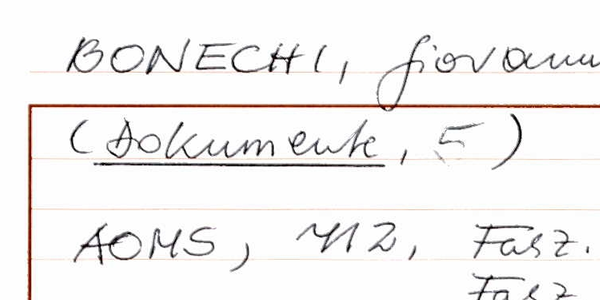 BONECHI, Giovanni
(Dokumente, 5)
AOMS, 412, Fasz.
Fasz